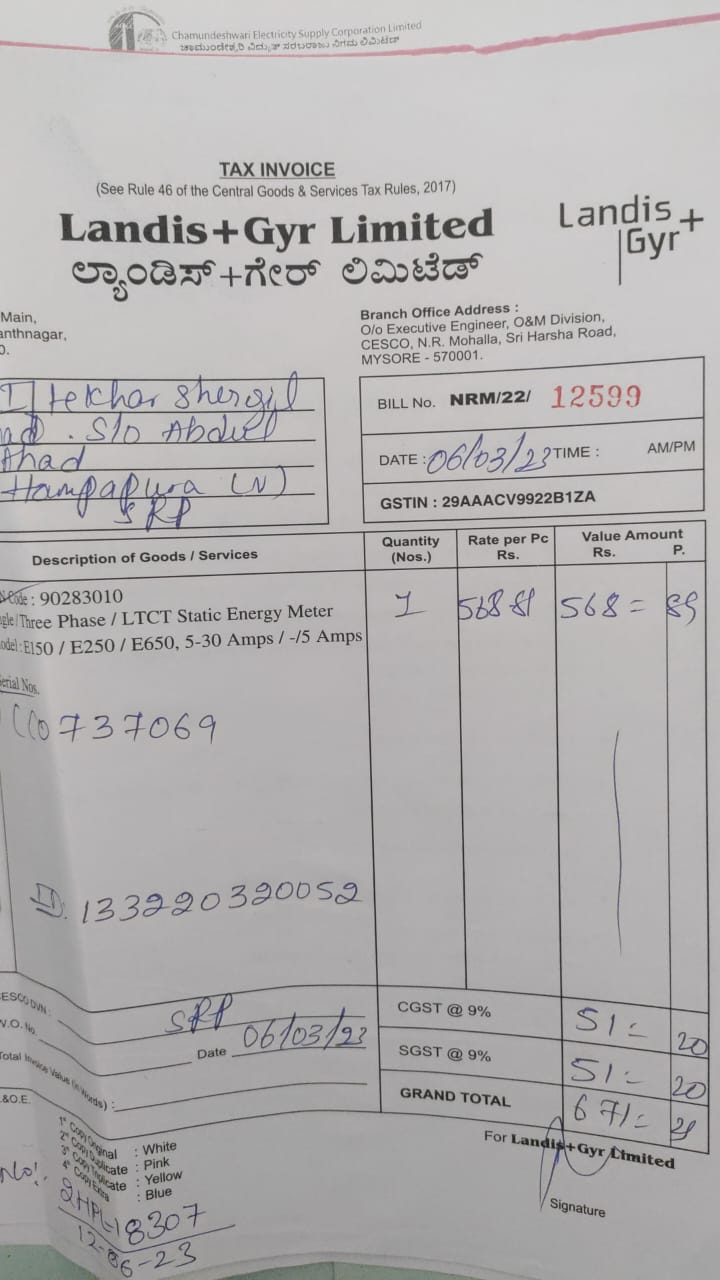 Chamundeshwari Electricity Supply Corporation Limited
ಚಾಮುಂಡೇಶ್ವರಿ ವಿದ್ಯುತ್ ಸರಬರಾಜು ನಿಗಮ ಲಿಮಿಟೆಡ್
TAX INVOICE
(See Rule 46 of the Central Goods & Services Tax Rules, 2017)
Landis+Gyr Limited
ಲ್ಯಾಂಡಿಸ್+ಗೇರ್ ಲಿಮಿಟೆಡ್
Landis
Gyr+
Main,
anthnagar,
0.
Branch Office Address :
O/o Executive Engineer, O&M Division,
CESCO, N.R. Mohalla, Sri Harsha Road,
MYSORE - 570001.
Iftekhar Shergil
S/o Abdul
Ahad
Hampapura (V)
SRP
BILL No. NRM/22/ 12599
DATE : 06/03/23 TIME : AM/PM
GSTIN : 29AAACV9922B1ZA
Description of Goods / Services
Quantity (Nos.)
Rate per Pc Rs.
Value Amount Rs. P.
Code : 90283010
gle/Three Phase / LTCT Static Energy Meter
odel : E150 / E250 / E650, 5-30 Amps / -/5 Amps
1 568 568 =
Serial Nos.
737069
ID. 133220320052
CESCO DVN : SRP
W.O. No.
Date 06/03/23
Total Invoice Value (in Words) :
E.&O.E.
CGST @ 9% 51 = 20
SGST @ 9% 51 = 20
GRAND TOTAL 671 =
For Landis+Gyr Limited
Signature
1st Copy Original : White
2nd Copy Duplicate : Pink
3rd Copy Triplicate : Yellow
4th Copy Extra : Blue
No!.
2HPL18307
12-06-23